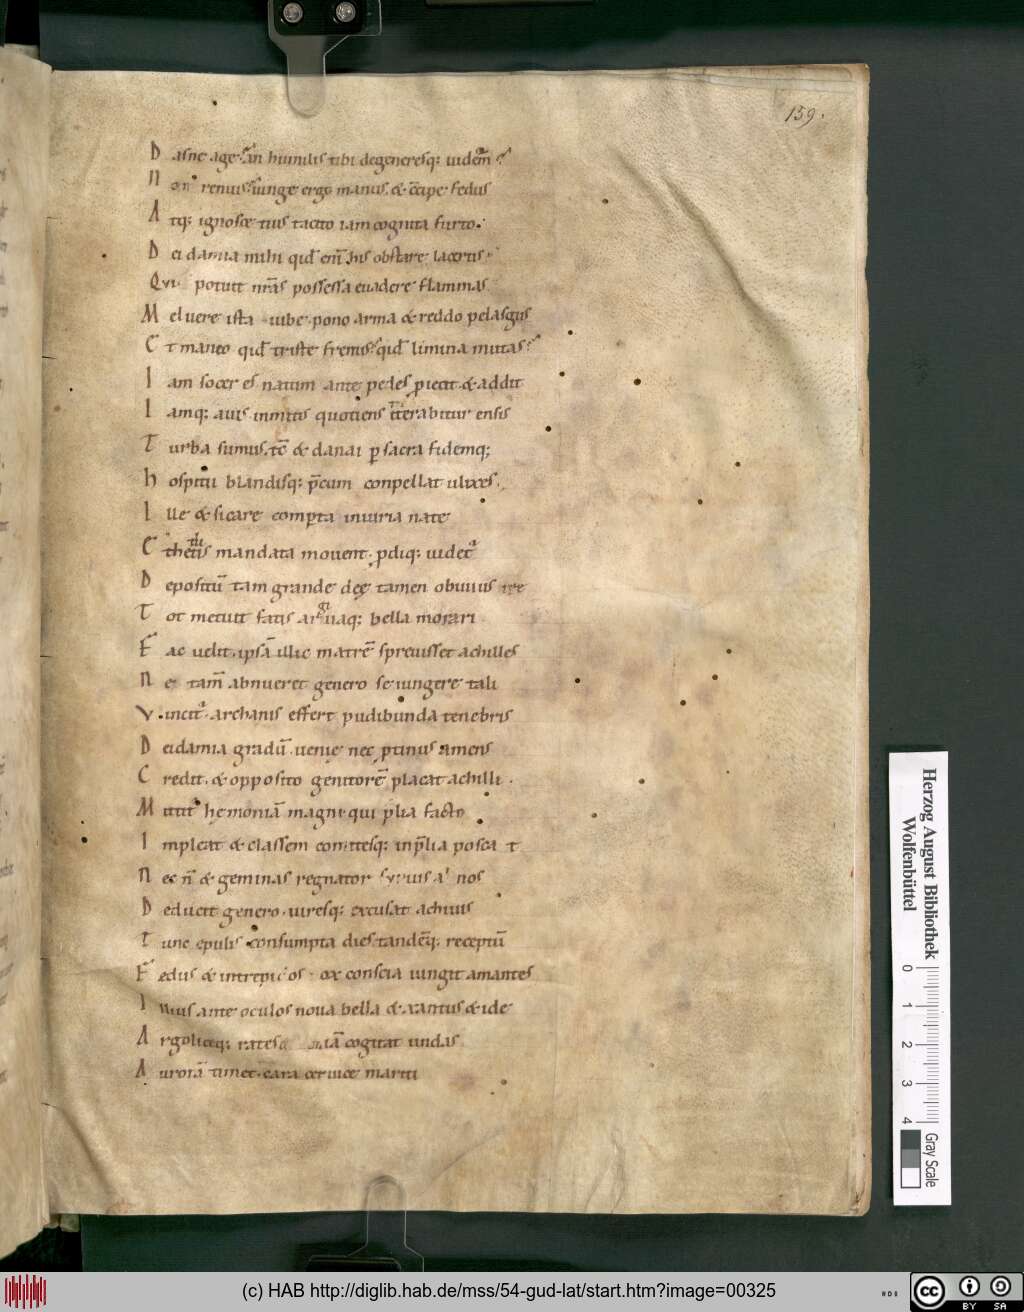 159.
D asne age. an humilis tibi degeneresq; uidem̄?
N on renuis. iunge ergo manus. & c̄cipe fedus
A tq; ignosce tuis tacito iam cognita furto.
D eidamia mihi qd̄ em̄ his obstare lacertis
Qui potuit nr̄as possessa euadere flammas
M e luere ista iube. pono arma & reddo pelasgus
E t maneo qd̄ triste fremis? qd̄ limina mutas?
I am socer es natum ante pedes piecit & addit
I amq; auis inmitis quotiens iterabitur ensis
T urba sumus. tc̄ & danai p sacra fidemq;
h ospitii blandisq; p̄cum conpellat ulixes.
I lle & sicare comperta iniuria nate
E thetis mandata mouent. pdiq; uidet
D epositū tam grande deę tamen obuius ire
T ot metuit fatis arguaq; bella morari
F ac uelit. ipsā illic matrē spreuisset achilles
N ec tam̄ abnueret genero se iungere tali
V incit. archanis effert pudibunda tenebris
D eidamia gradū. uenię nec ptinus amens
C redit. & opposito genitorē placat achilli.
M ittit hęmoniā magnis qui p̄lia factis
I mpleat & classem comitesq; in p̄lia poscat
N ec n̄ & geminas regnator nos
D educit genero. uiresq; excusat achiuis
T unc epulis consumpta dies tandeq; receptū
F edus & intrepidos. ox conscia iungit amantes
I llius ante oculos noua bella & xantus & ide
A rgolicęq; rates cogitat undas
A urorā timet. cara ceruice mariti
Herzog August Bibliothek
Wolfenbüttel
0 1 2 3 4
Gray Scale
(c) HAB http://diglib.hab.de/mss/54-gud-lat/start.htm?image=00325
cc BY SA